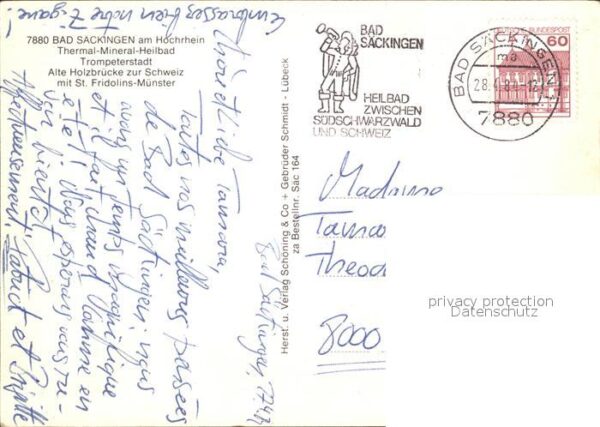 7880 BAD SÄCKINGEN am Hochrhein
Thermal-Mineral-Heilbad
Trompeterstadt
Alte Holzbrücke zur Schweiz
mit St. Fridolins-Münster
Herst. u. Verlag Schöning & Co + Gebrüder Schmidt · Lübeck
za Bestellnr. Sac 164
BAD
SÄCKINGEN
HEILBAD
ZWISCHEN
SÜDSCHWARZWALD
UND SCHWEIZ
BUNDESPOST
60
BAD SÄCKINGEN
ma
7880
Bad Säckingen,
Liebe Tamara,
Toutes nos meilleures pensées
de Bad Säckingen, nous
avons un temps magnifique
et il fait chaud comme en
été! Nous espérons vous re-
voir bientôt,
Affectueusement,
et
embrasses bien notre
Madame
Tamar
Theod
8000
privacy protection
Datenschutz